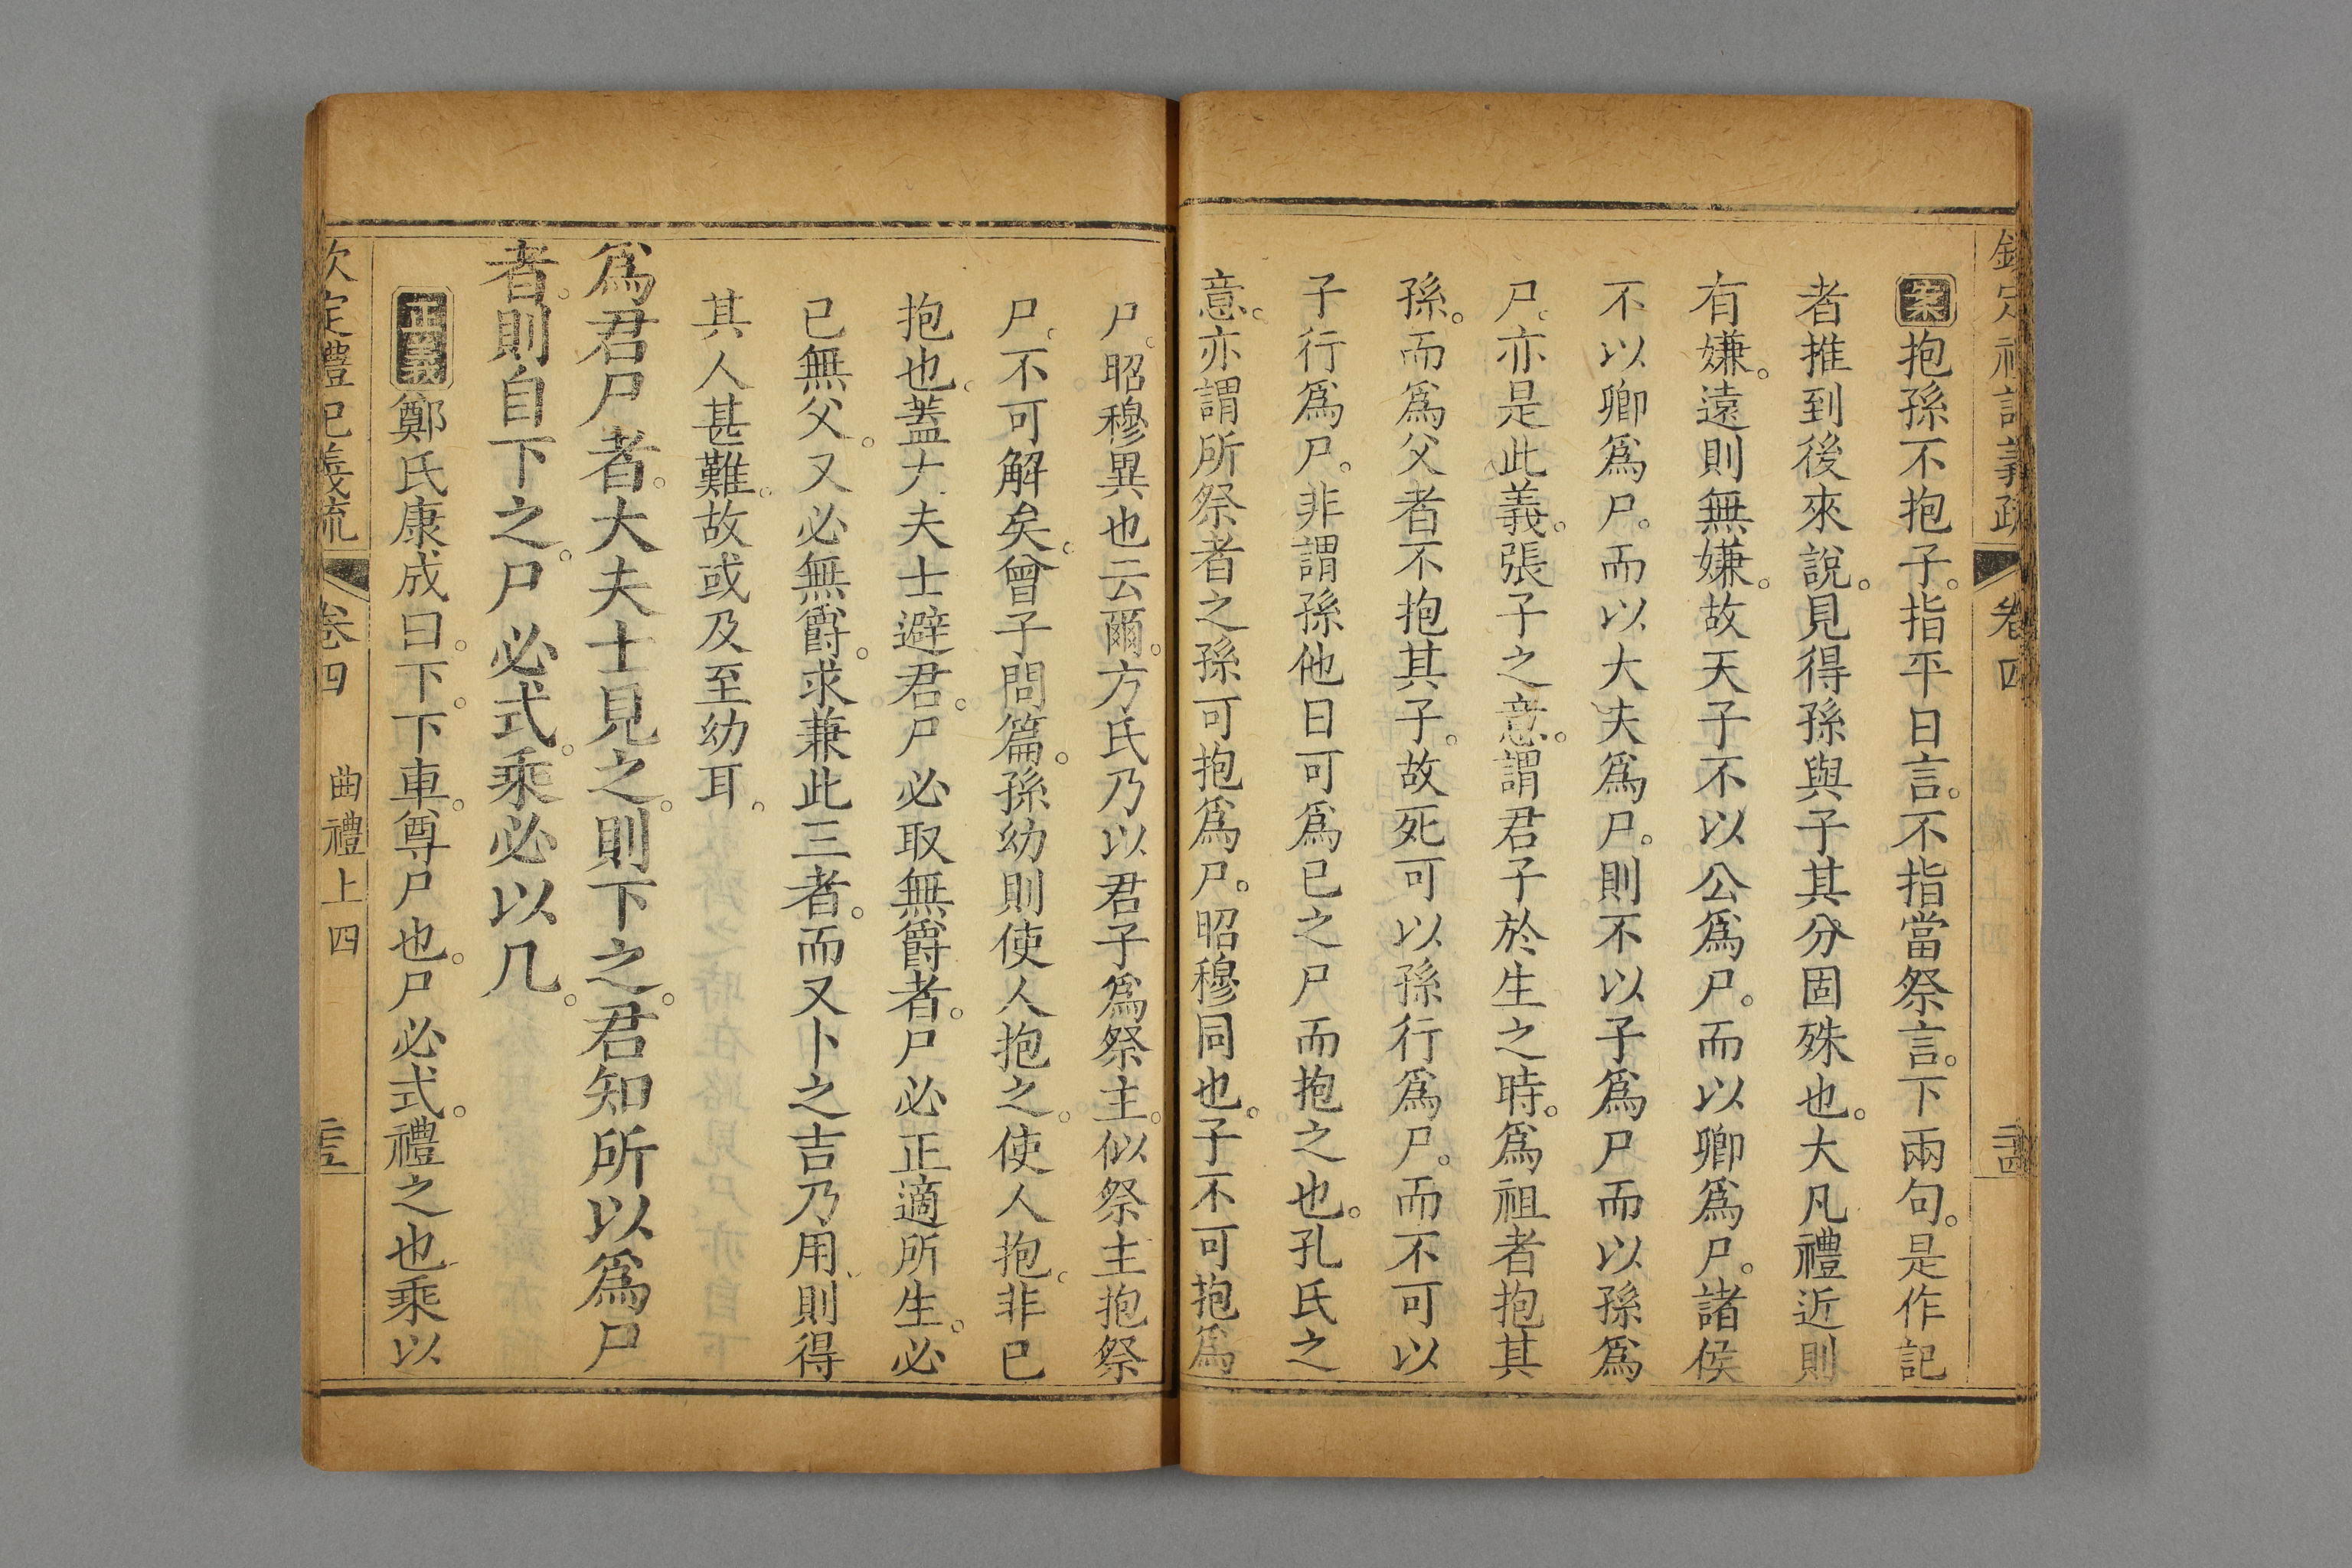 欽定禮記義疏 卷四 二十四
案抱孫不抱子。指平日言。不指當祭言。下兩句。是作記
者推到後來說。見得孫與子其分固殊也。大凡禮近則
有嫌。遠則無嫌。故天子不以公爲尸。而以卿爲尸。諸侯
不以卿爲尸。而以大夫爲尸。則不以子爲尸而以孫爲
尸。亦是此義。張子之意。謂君子於生之時。爲祖者抱其
孫。而爲父者不抱其子。故死可以孫行爲尸。而不可以
子行爲尸。非謂孫他日可爲已之尸而抱之也。孔氏之
意。亦謂所祭者之孫可抱爲尸。昭穆同也。子不可抱爲
尸。昭穆異也云爾。方氏乃以君子爲祭主。似祭主抱祭
尸。不可解矣。曾子問篇。孫幼則使人抱之。使人抱。非已
抱也。蓋大夫士避君。尸必取無爵者。尸必正適所生。必
已無父。又必無爵。求兼此三者。而又卜之吉乃用。則得
其人甚難。故或及至幼耳。
爲君尸者。大夫士見之。則下之。君知所以爲尸
者。則自下之。尸必式。乘必以几。
正義鄭氏康成曰。下。下車。尊尸也。尸必式。禮之也乘以
欽定禮記義疏 卷四 曲禮上四 二十五